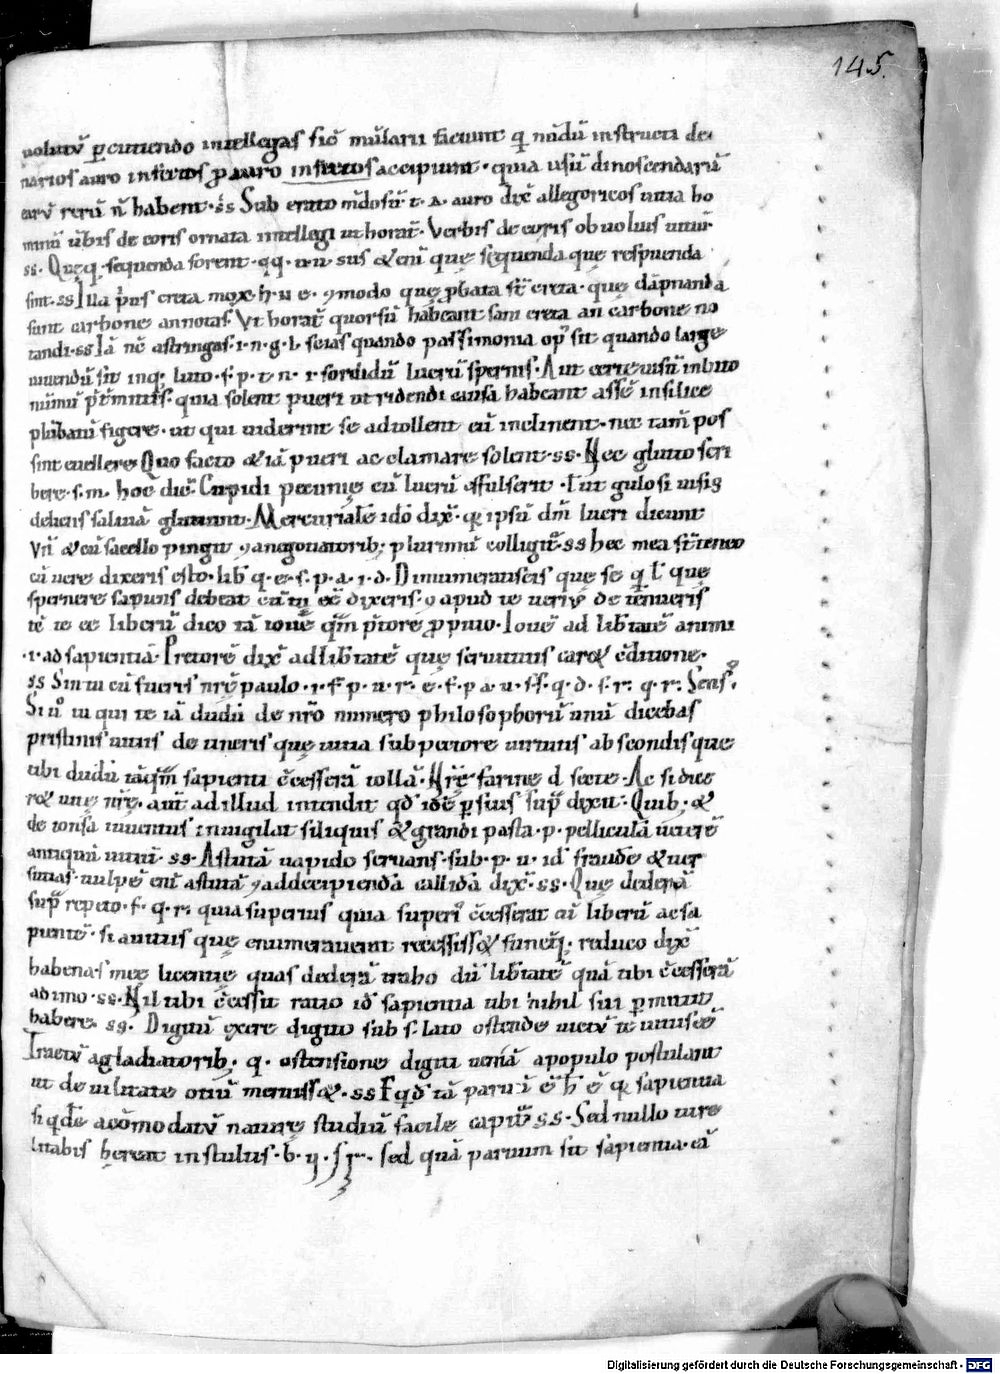 145.
uolutū ꝑcutiendo intellegas sic̄ mularii faciunt q̄ mīdū instructi de
narios auro insertos ꝓ auro insertos accipiunt · quia usū dinoscendarū
earū rerū n̄ habent · ss Sub erato m̄dosū · t · a · auro dix̄ allegoricos uitia ho
minū ūbis decoris ornata intellegi ut horat̄ · Verbis decoris obuoluis
ss · Quęq · sequenda forent · qq · u u sus & enī quę sequenda quę respuenda
sint · ss Illa prius creta mox · h · u e · ɔmodo quę ꝓbata st̄ creta · quę dāpnanda
sunt carbone annotas · Vt horat̄ quorsū habeant sani creta an carbone no
tandi · ss Iā nc̄ astringas · i · n · g · l · scias quando passimonia op sit quando large
uiuendū sit inq luto · f · p · t · n · i · sordidū lucrū spernis · Aut certe uisū in luto
nūmū p̄t̄mittis · quia solent pueri ut ridendi causa habeant assē in silice
plūbatū figere · ut qui uiderint se ad tollent eū inclinent · nec tam̄ pos
sint euellere Quo facto & iā pueri acclamare solent · ss · Nec glutto sor
bere · s · m · hoc dic̄ Cupidi pecunię cū lucrū effulserit · l ut gulosi uisis
deliciis saliuā gluttiunt · Mercurialē idō dix̄ · q̄ ipsū dm̄ lucri dicunt
Vn̄ & cū sacello pingit ɔangouatorib; plurimū colligit̄ · ss hec mea st̄ teneo
cū uere dixeris esto · lib q · e · s · p · a · i · d · Dinumeratis eis quę se q̄ l quę
spernere sapiens debeat cū tu eē dixeris · ɔ apud te uerū de tenueris
tē te eē liberū dico tā iouē qm̄ p̄torē ꝓpitio · Iouē ad lib̄tatē animi
· i · ad sapientiā · Pretorē dix̄ ad lib̄tatē quę seruitutis caret c̄ditione ·
ss Sin tu cū fueris nr̄ę paulo · i · f · p · n · r · e · f · p · a · u · f · f · q · d · s · r · q · r · Sens ·
Si uº tu qui te iā dudū de nr̄o numero philosophorū unū dicebas
pristinis uitiis de ueneris quę uitia sub pectore uirtutis abscondis que
tibi dudū tāqm̄ sapienti c̄cesserā tollā · Nr̄ę farine d secte · Ac si dice
r& uitę nr̄ę · aut̄ ad illud intendit qd̄ idē ꝑsius sup̄ dixit · Quib; &
de tonsa iuuentus inuigilat siliquis & grandi pasta · p · pelliculā ueterē
antiqui uitiū · ss · Astutā uapido seruans · sub · p · u · id fraude & uer
sutias · uulpē enī astutā ɔ ad decipiendā callidā dix̄ · ss · Quę dederā
sup̄ repeto · f · q · r · quia superius quia superi c̄cesserat eū liberū ac sa
pientē · si a uitiis quę enumerauerat recessiss& funeq; reduco dix̄
habenas meę licentię quas dederā traho dū lib̄tatē quā tibi c̄cesserā
adimo · ss · Nil tibi c̄cessit ratio id sapientia tibi nihil sui ꝑmittit
habere · ss · Digitū exere digito sub s · lato ostende uictū te uitiis eē
Tractū a gladiatorib; · q · ostensione digiti ueniā a populo postulant
ut de uilitate otiū meruiss& · ss Et qd̄ tā paruū ē h ē q̄ sapientia
si qdē acōmodatū naturę studiū facile capit̄ ss · Sed nullo ture
litabis herent in stultis · b · ij · s r · sed quā paruum sit sapientia · eā
Digitalisierung gefördert durch die Deutsche Forschungsgemeinschaft - DFG